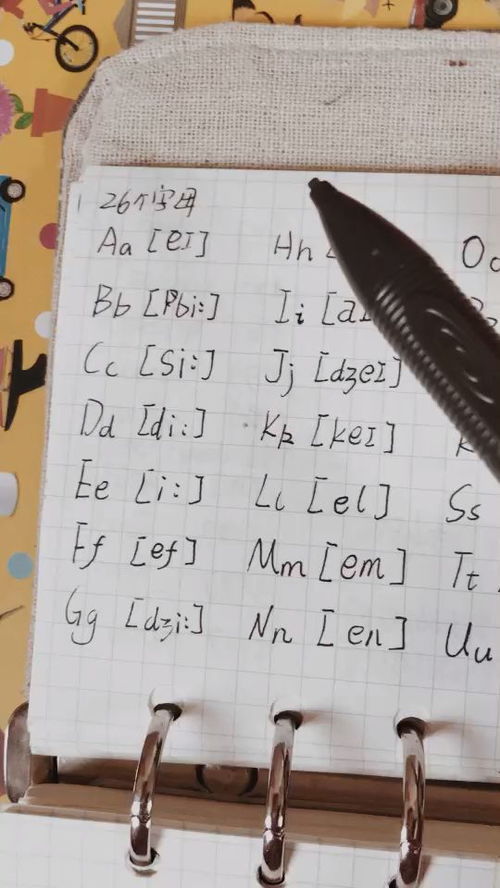 26个字母
Aa [eɪ] Hh
Bb [Pbi:] Ii [aɪ
Cc [Si:] Jj [dʒeɪ]
Dd [di:] Kk [keɪ]
Ee [i:] Ll [el] Ss
Ff [ef] Mm [em] Tt
Gg [dʒi:] Nn [en] Uu